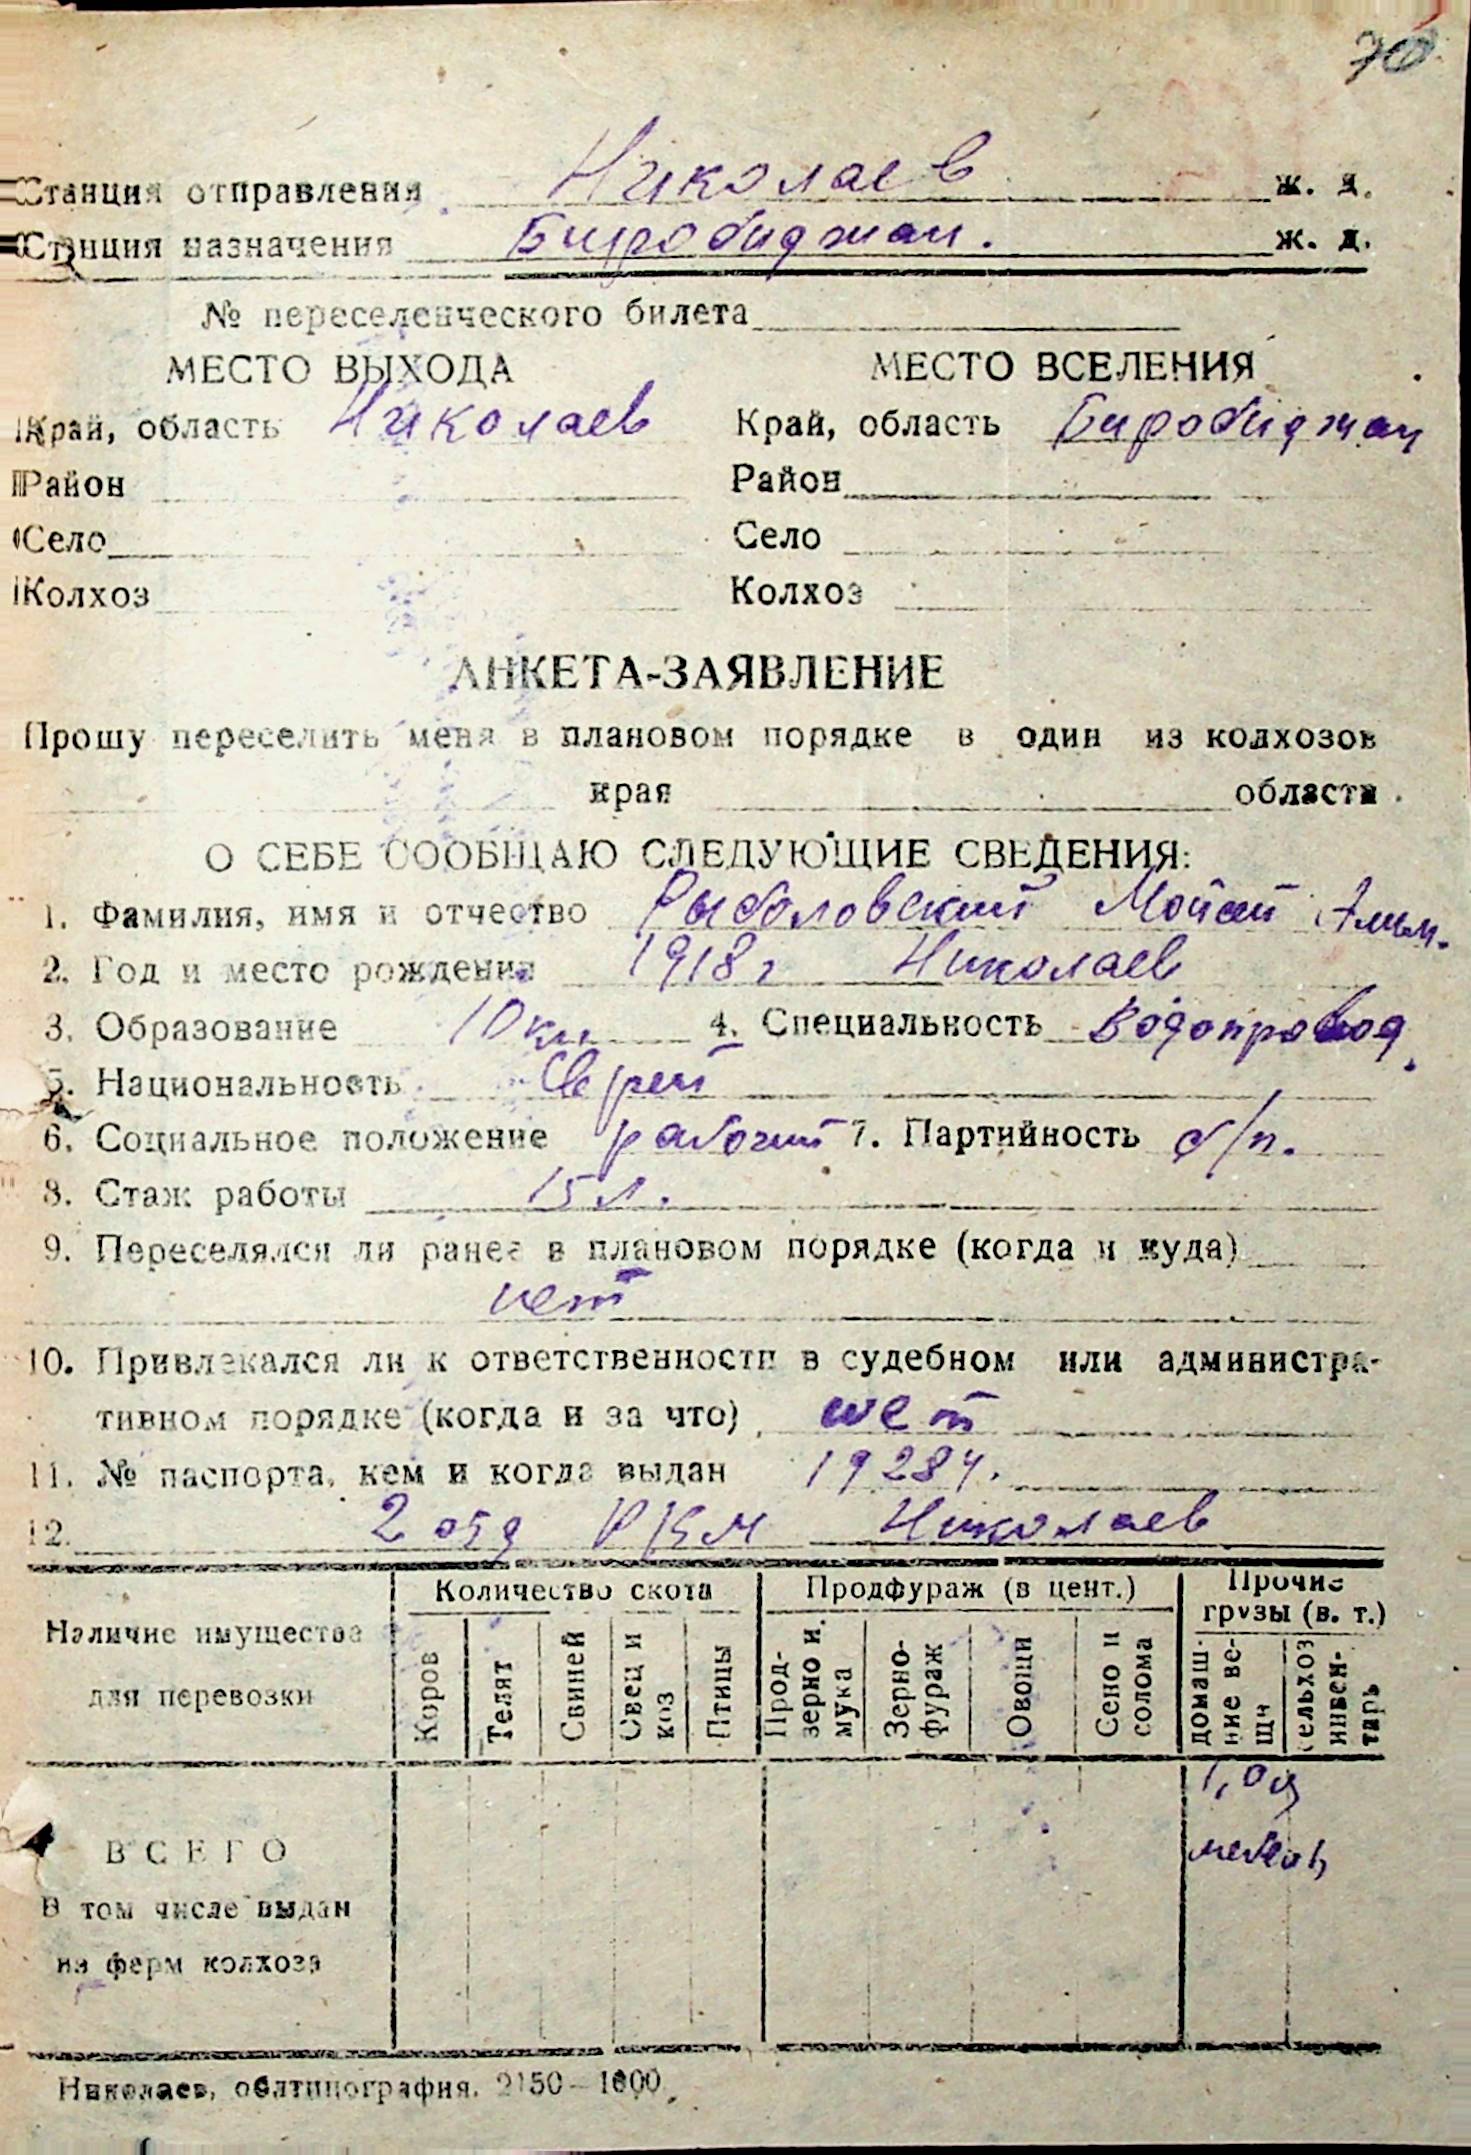 70
Станция отправления Николаев ж. д.
Станция назначения Биробиджан. ж. д.
№ переселенческого билета
МЕСТО ВЫХОДА МЕСТО ВСЕЛЕНИЯ
Край, область Николаев Край, область Биробиджан
Район Район
Село Село
Колхоз Колхоз
АНКЕТА-ЗАЯВЛЕНИЕ
Прошу переселить меня в плановом порядке в один из колхозов
края области
О СЕБЕ СООБЩАЮ СЛЕДУЮЩИЕ СВЕДЕНИЯ:
1. Фамилия, имя и отчество Рыболовский Мойсей
2. Год и место рождения 1918 г Николаев
3. Образование 10 кл 4. Специальность Водопровод.
5. Национальность Еврей
6. Социальное положение рабочий 7. Партийность б/п.
8. Стаж работы 15 л.
9. Переселялся ли ранее в плановом порядке (когда и куда)
нет
10. Привлекался ли к ответственности в судебном или администра-
тивном порядке (когда и за что) нет
11. № паспорта, кем и когда выдан 19284.
12. 2 отд РКМ Николаев
Наличие имущества для перевозки Количество скота Продфураж (в цент.) Прочие грузы (в. т.)
Коров Телят Свиней Овец и коз Птицы Прод-зерно и мука Зерно-фураж Овощи Сено и солома домаш-ние ве-щи сельхоз инвен-тарь
1,0 ц
ВСЕГО мебель
В том числе выдан
из ферм колхоза
Николаев, облтипография. 2150—1000